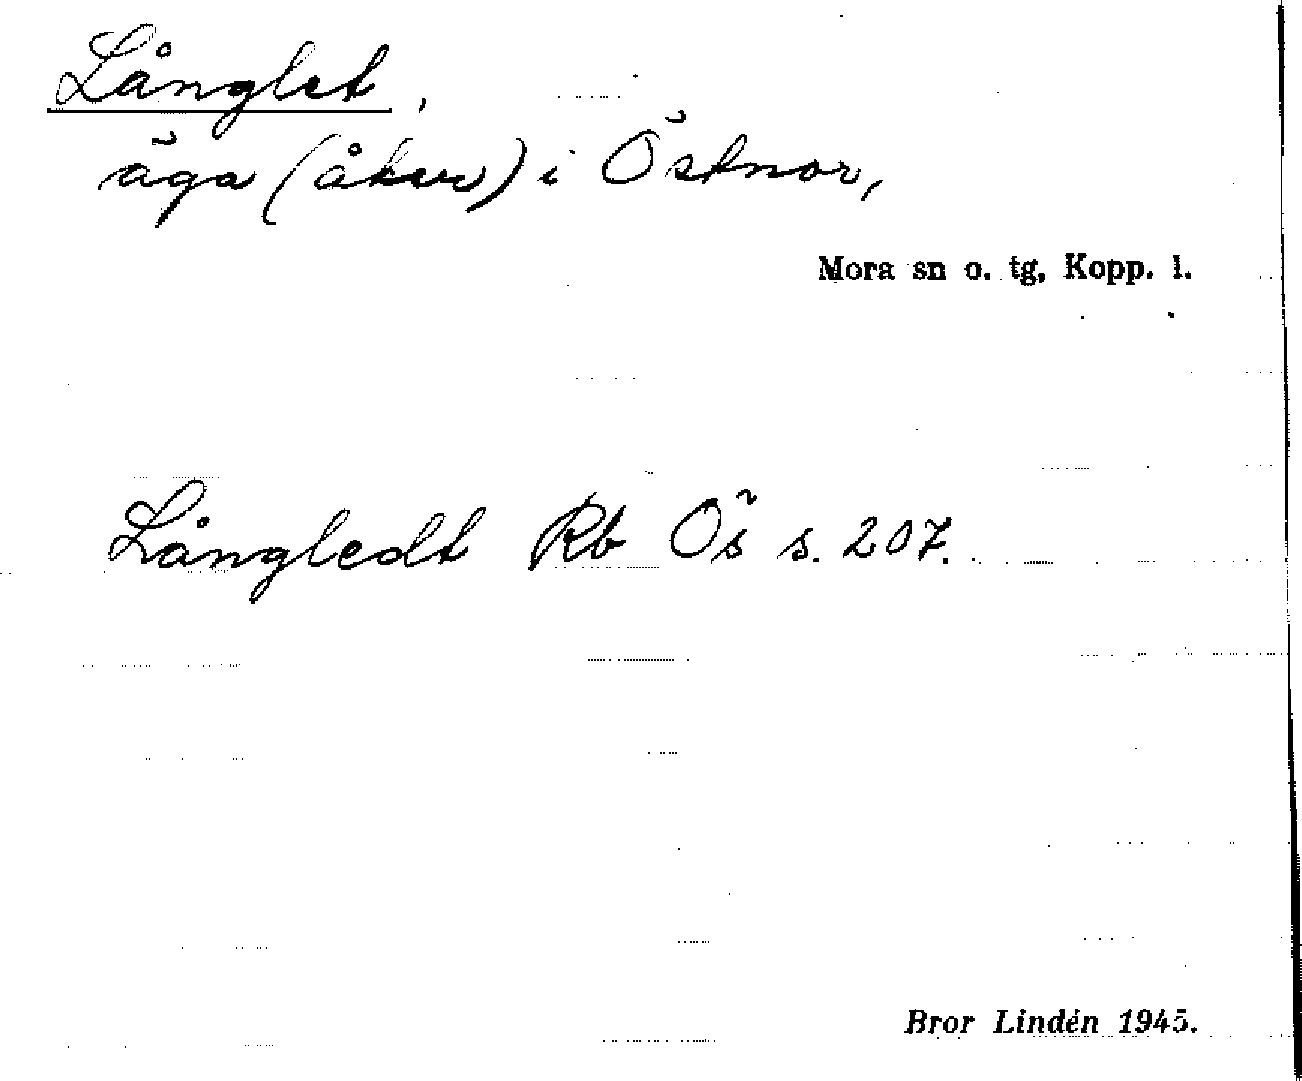 Långlet,
äga (åker) i Östnor,
Mora sn o. tg, Kopp. l.
Långledt Rb Ös s. 207.
Bror Lindén 1945.